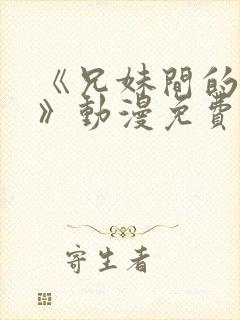 《兄妹間的
》動漫免費
寄生者